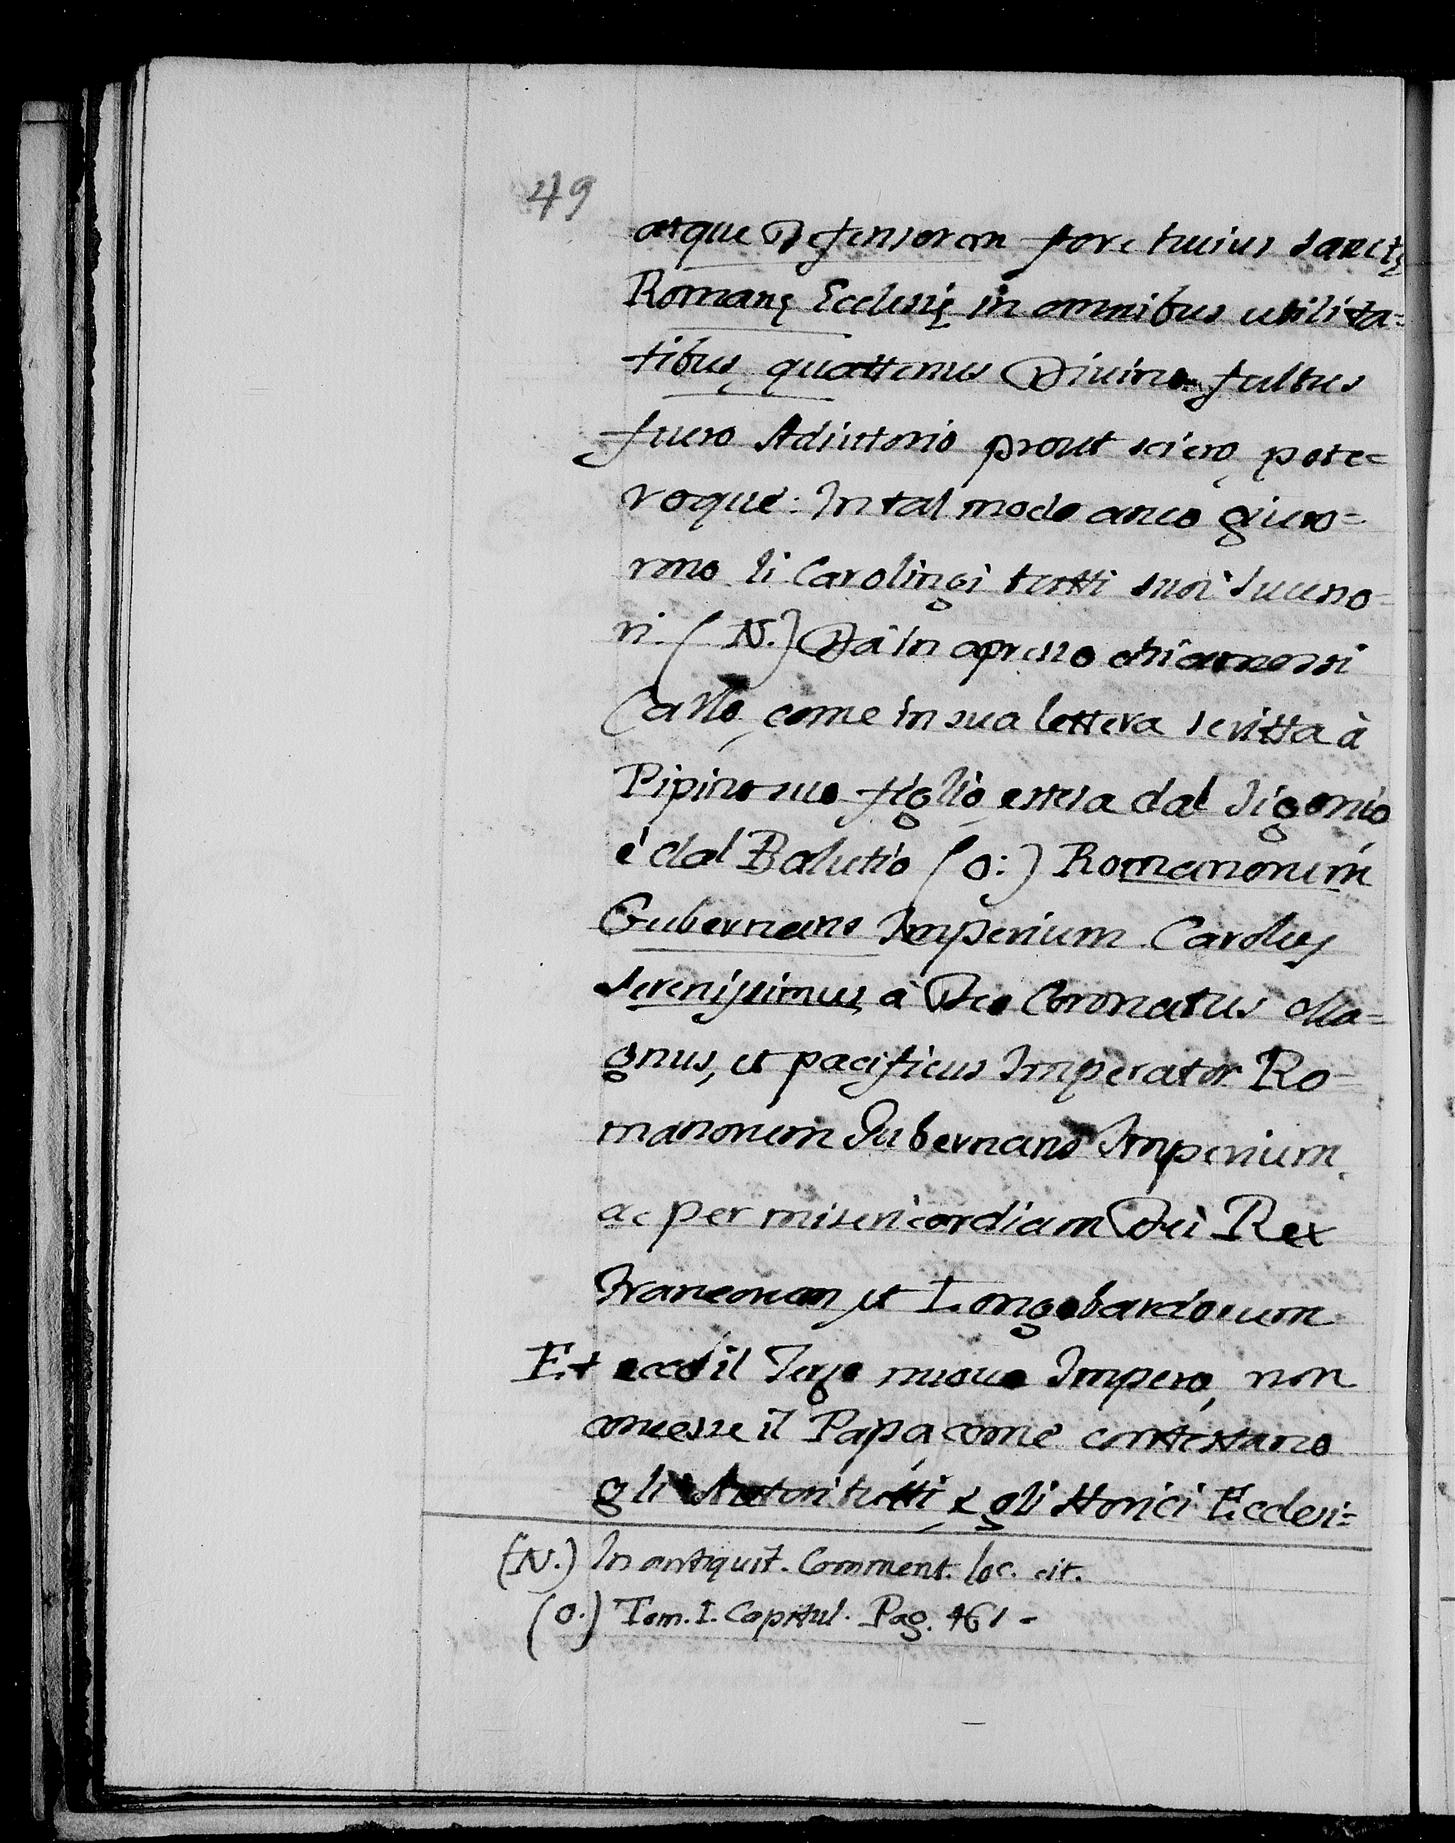 49
atque Defensorem fore huius Sanctę
Romanę Ecclesię in omnibus utilita=
tibus, quattenus Divino fultus
fuero Adiutorio prout sciero, pote=
roque: In tal modo anco giuro=
rono li Carolingi tutti suoi Succeso=
ri. (N.) Da In apresso chiamossi
Carlo, come in sua lettera scritta à
Pipino suo figlio, estesa dal Sigonio
è dal Balutio (O:) Romanorum
Gubernans Imperium Carolus
Serenissimus à Deo Coronatus Ma=
gnus, et pacificus Imperator Ro=
manorum Gubernans Imperium,
ac per misericordiam Dei Rex
Francorum et Longobardorum
Et ecco il Terzo nuovo Impero, non
concesse il Papa, come contestano
gli Autori tutti, e gli Storici Eclesi=
(N.) In antiquit. Comment. loc. cit.
(O.) Tom. I. Capitul. Pag. 461 -